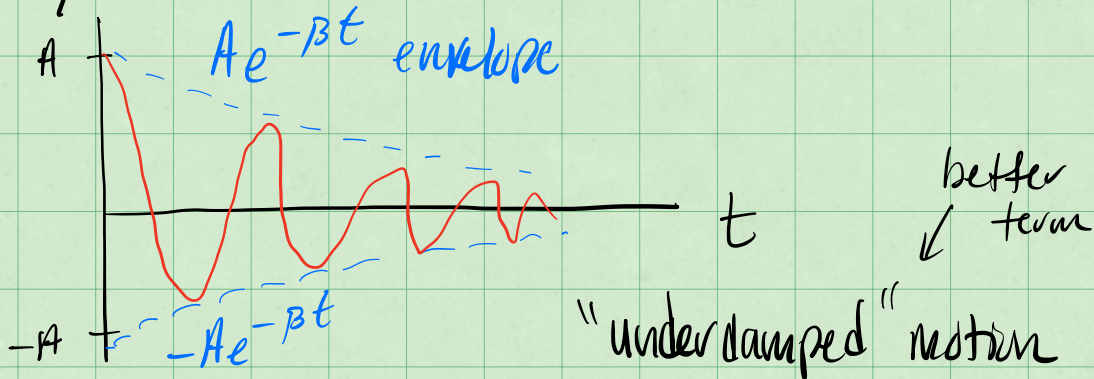 A
Ae^{-βt} envelope
better
term
t
-A
-Ae^{-βt}
"underdamped" motion